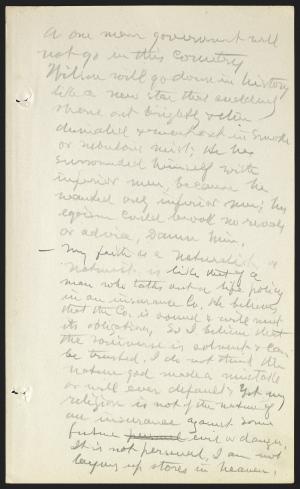 A one man government will
not go in this country
Wilson will go down in history
like a new star that suddenly
shone out brightly & then
dwindled & went out in smoke
or nebulous mist; he has
surrounded himself with
inferior men, because he
wanted only inferior men; his
egoism could brook no rivals
or advice, Damn him.
— My faith as a Naturalist, a
Naturist is like that of a
man who takes out a life policy
in an insurance Co. He believes
that the Co. is sound & will meet
its obligations, So I believe that
the universe is solvent & can
be trusted, I do not think the
nature god made a mistake
or will ever default & Yet my
religion is not of the nature of
an insurance against some
future personal evil or danger.
It is not personal, I am not
laying up stores in heaven.